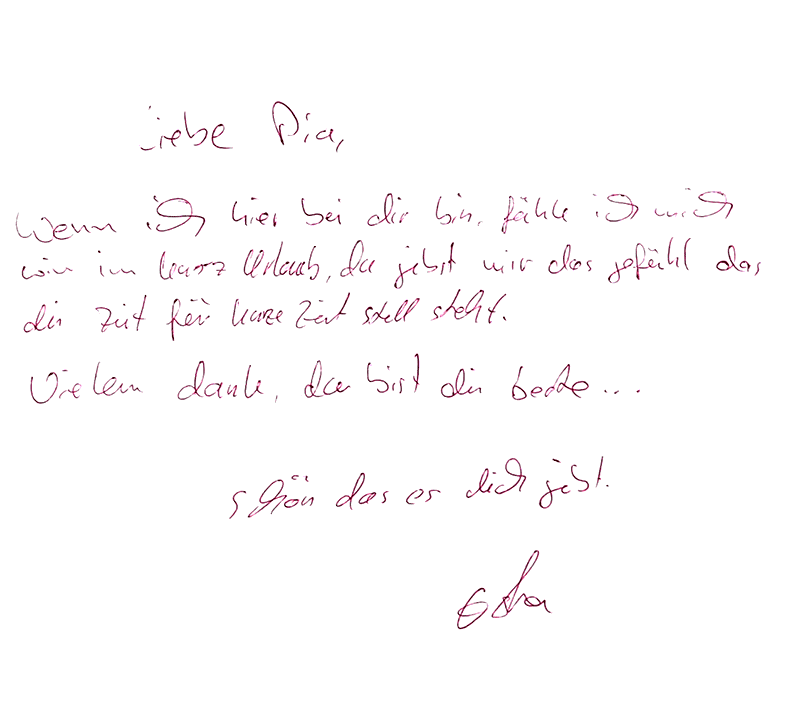 Liebe Pia,
Wenn ich hier bei dir bin, fühle ich mich
wie im kurz Urlaub, du gibst mir das gefühl das
die Zeit für kurze Zeit still steht.
Vielen dank, du bist die beste...
schön das es dich gibt.